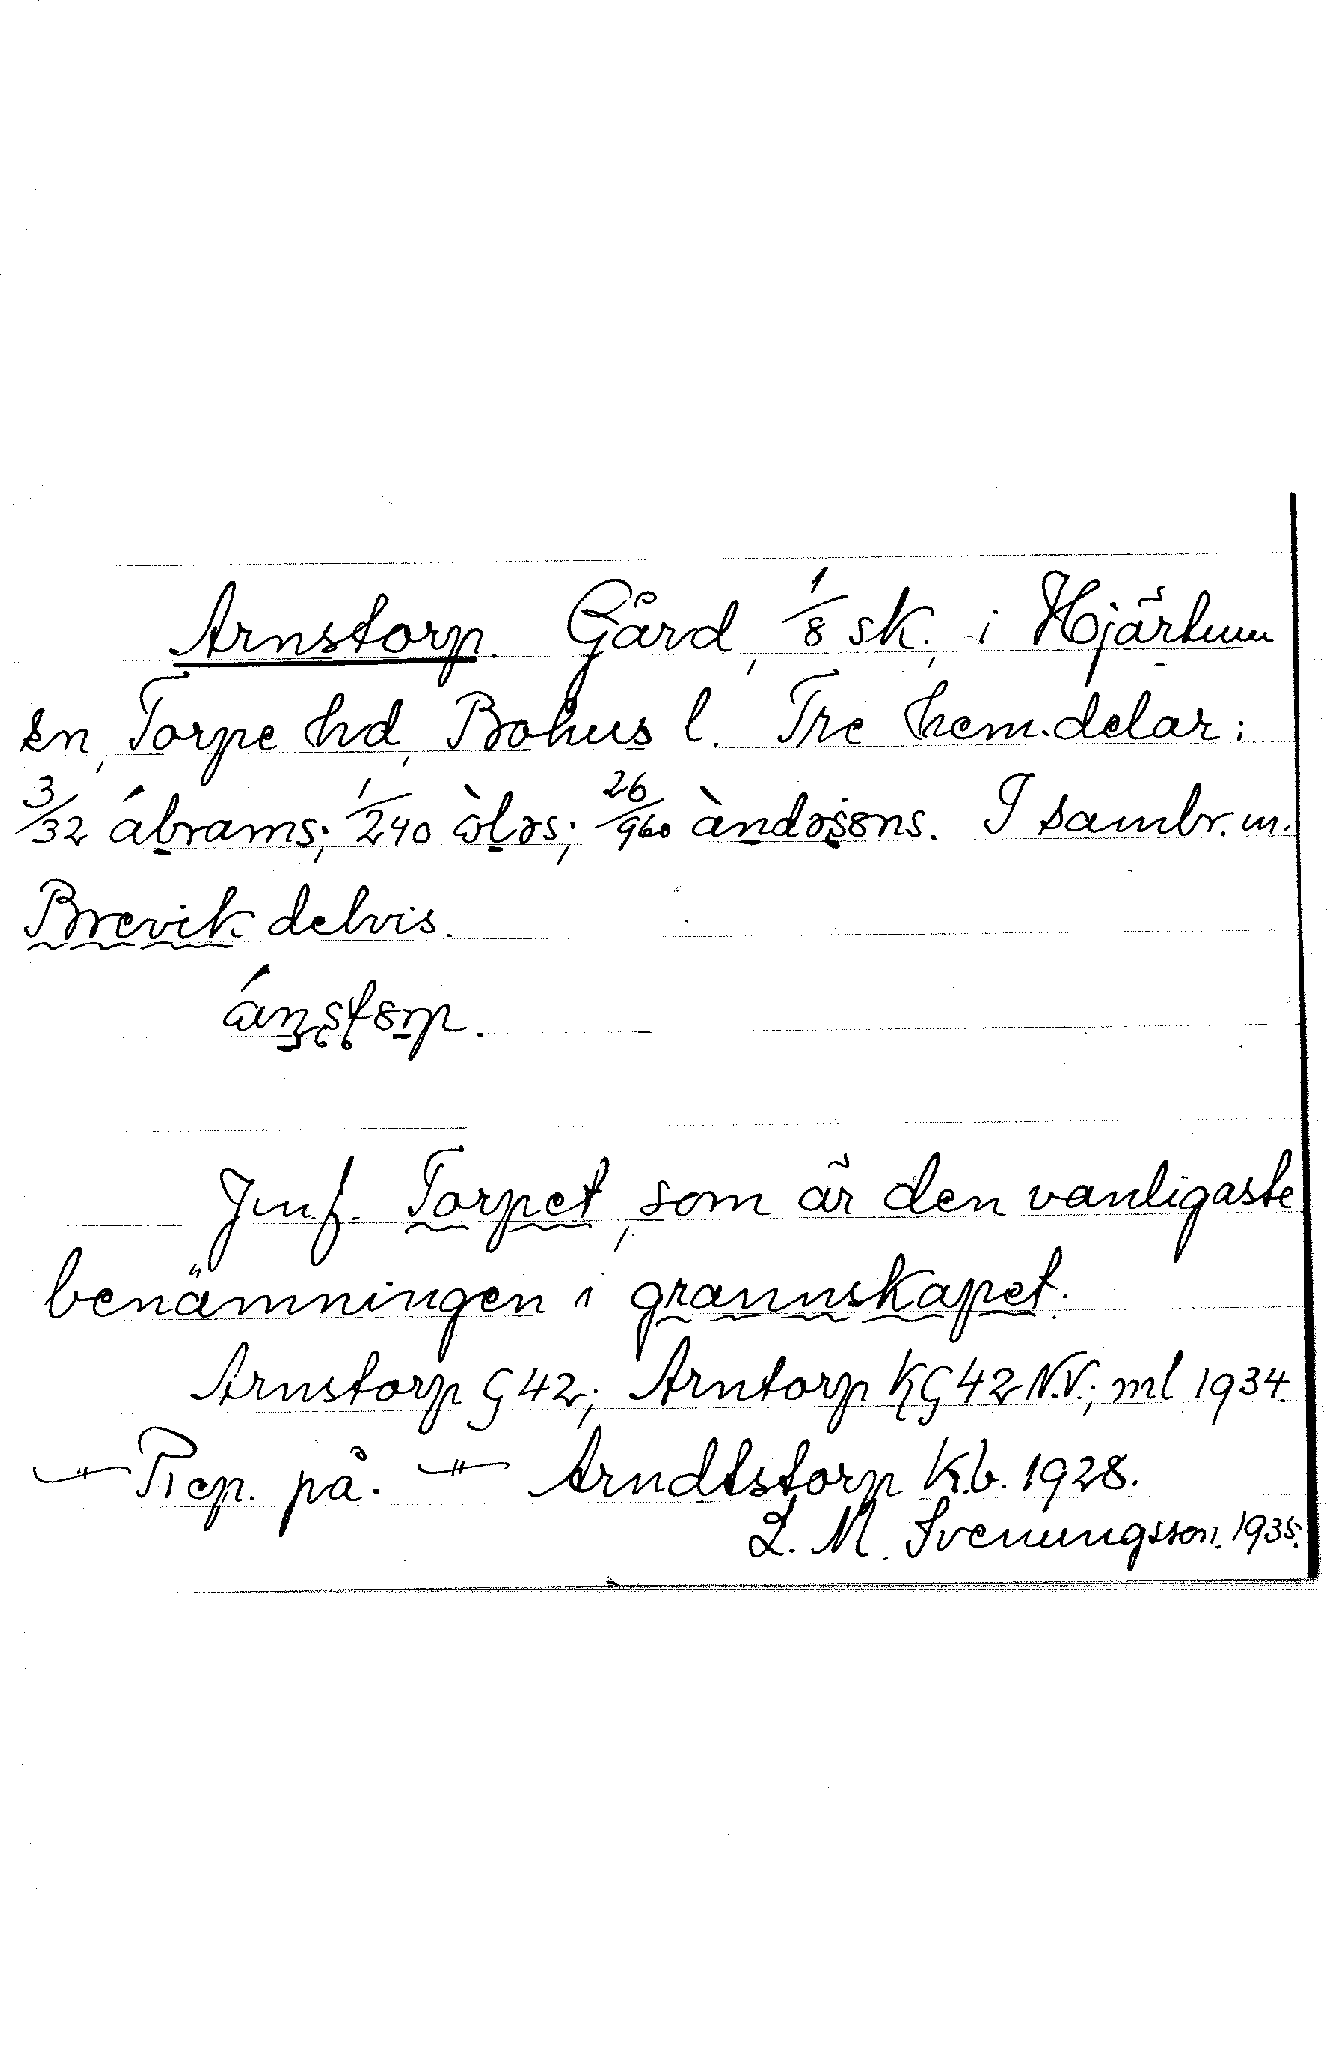 Arnstorp. Gård, 1/8 sk., i Hjärtum
sn, Torpe hd, Bohus l. Tre hem.delar:
3/32 ábrams; 1/240 òləs; 26/960 àndəsɷns. I sambr. m.
Brevik delvis.
áɳʂʈɷrp.
Jmf. Torpet, som är den vanligaste
benämningen i grannskapet.
Arnstorp G 42; Arntorp KG 42 N.V.; ml 1934.
–"– Rep. på. –"– Arndtstorp K.b. 1928.
L. M. Svenungsson. 1935.